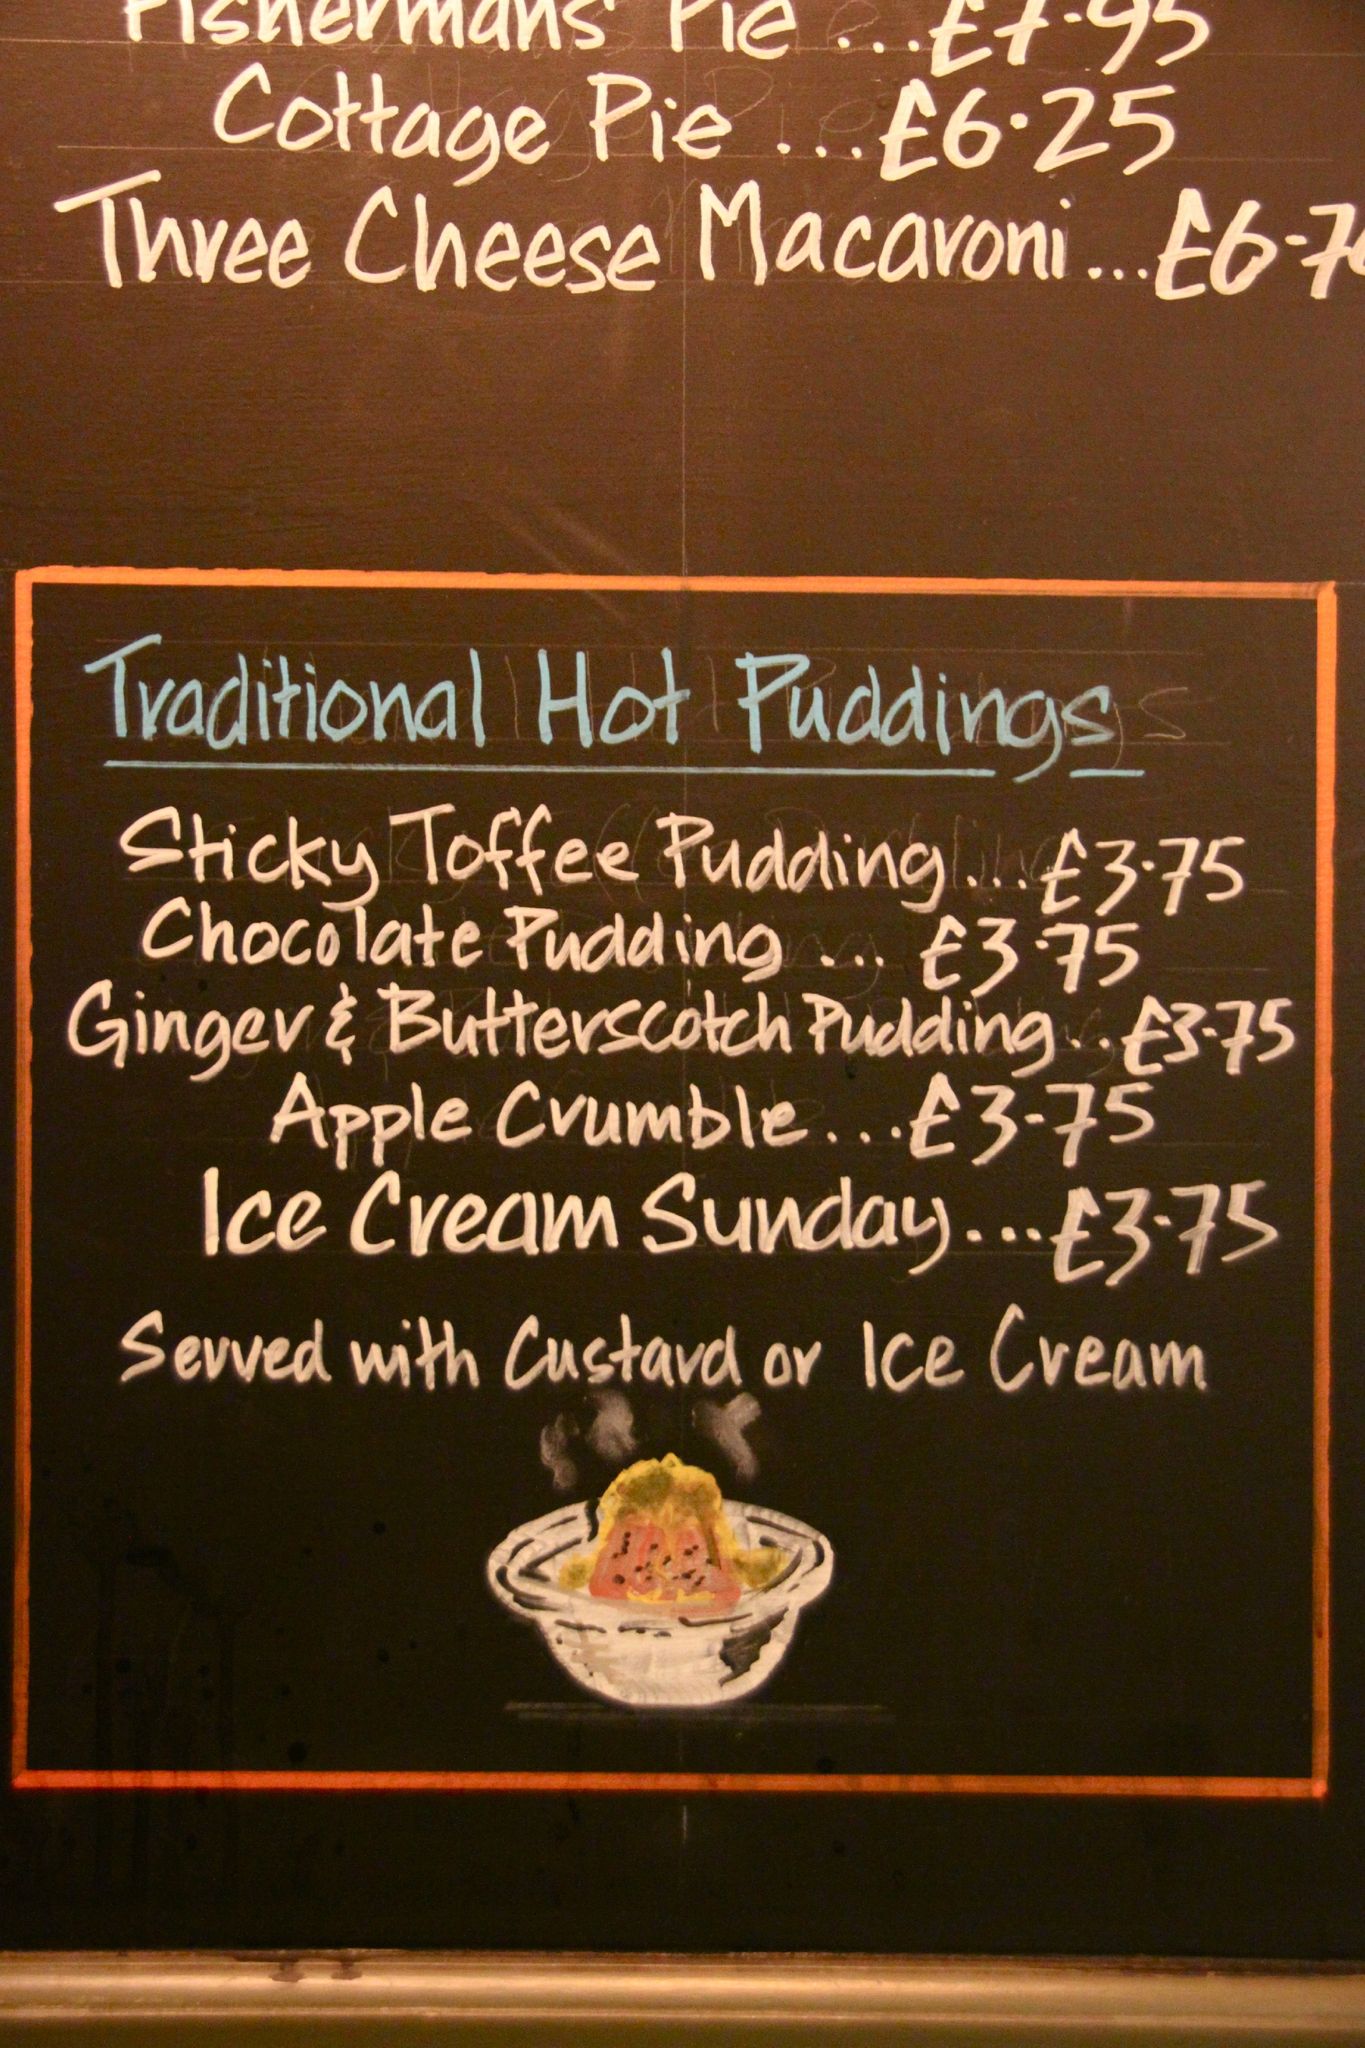 Fishermans Pie ... £7.95
Cottage Pie ... £6.25
Three Cheese Macaroni ... £6-7
Traditional Hot Puddings
Sticky Toffee Pudding ... £3.75
Chocolate Pudding ... £3.75
Ginger & Butterscotch Pudding .. £3.75
Apple Crumble ... £3-75
Ice Cream Sunday ... £3-75
Served with Custard or Ice Cream